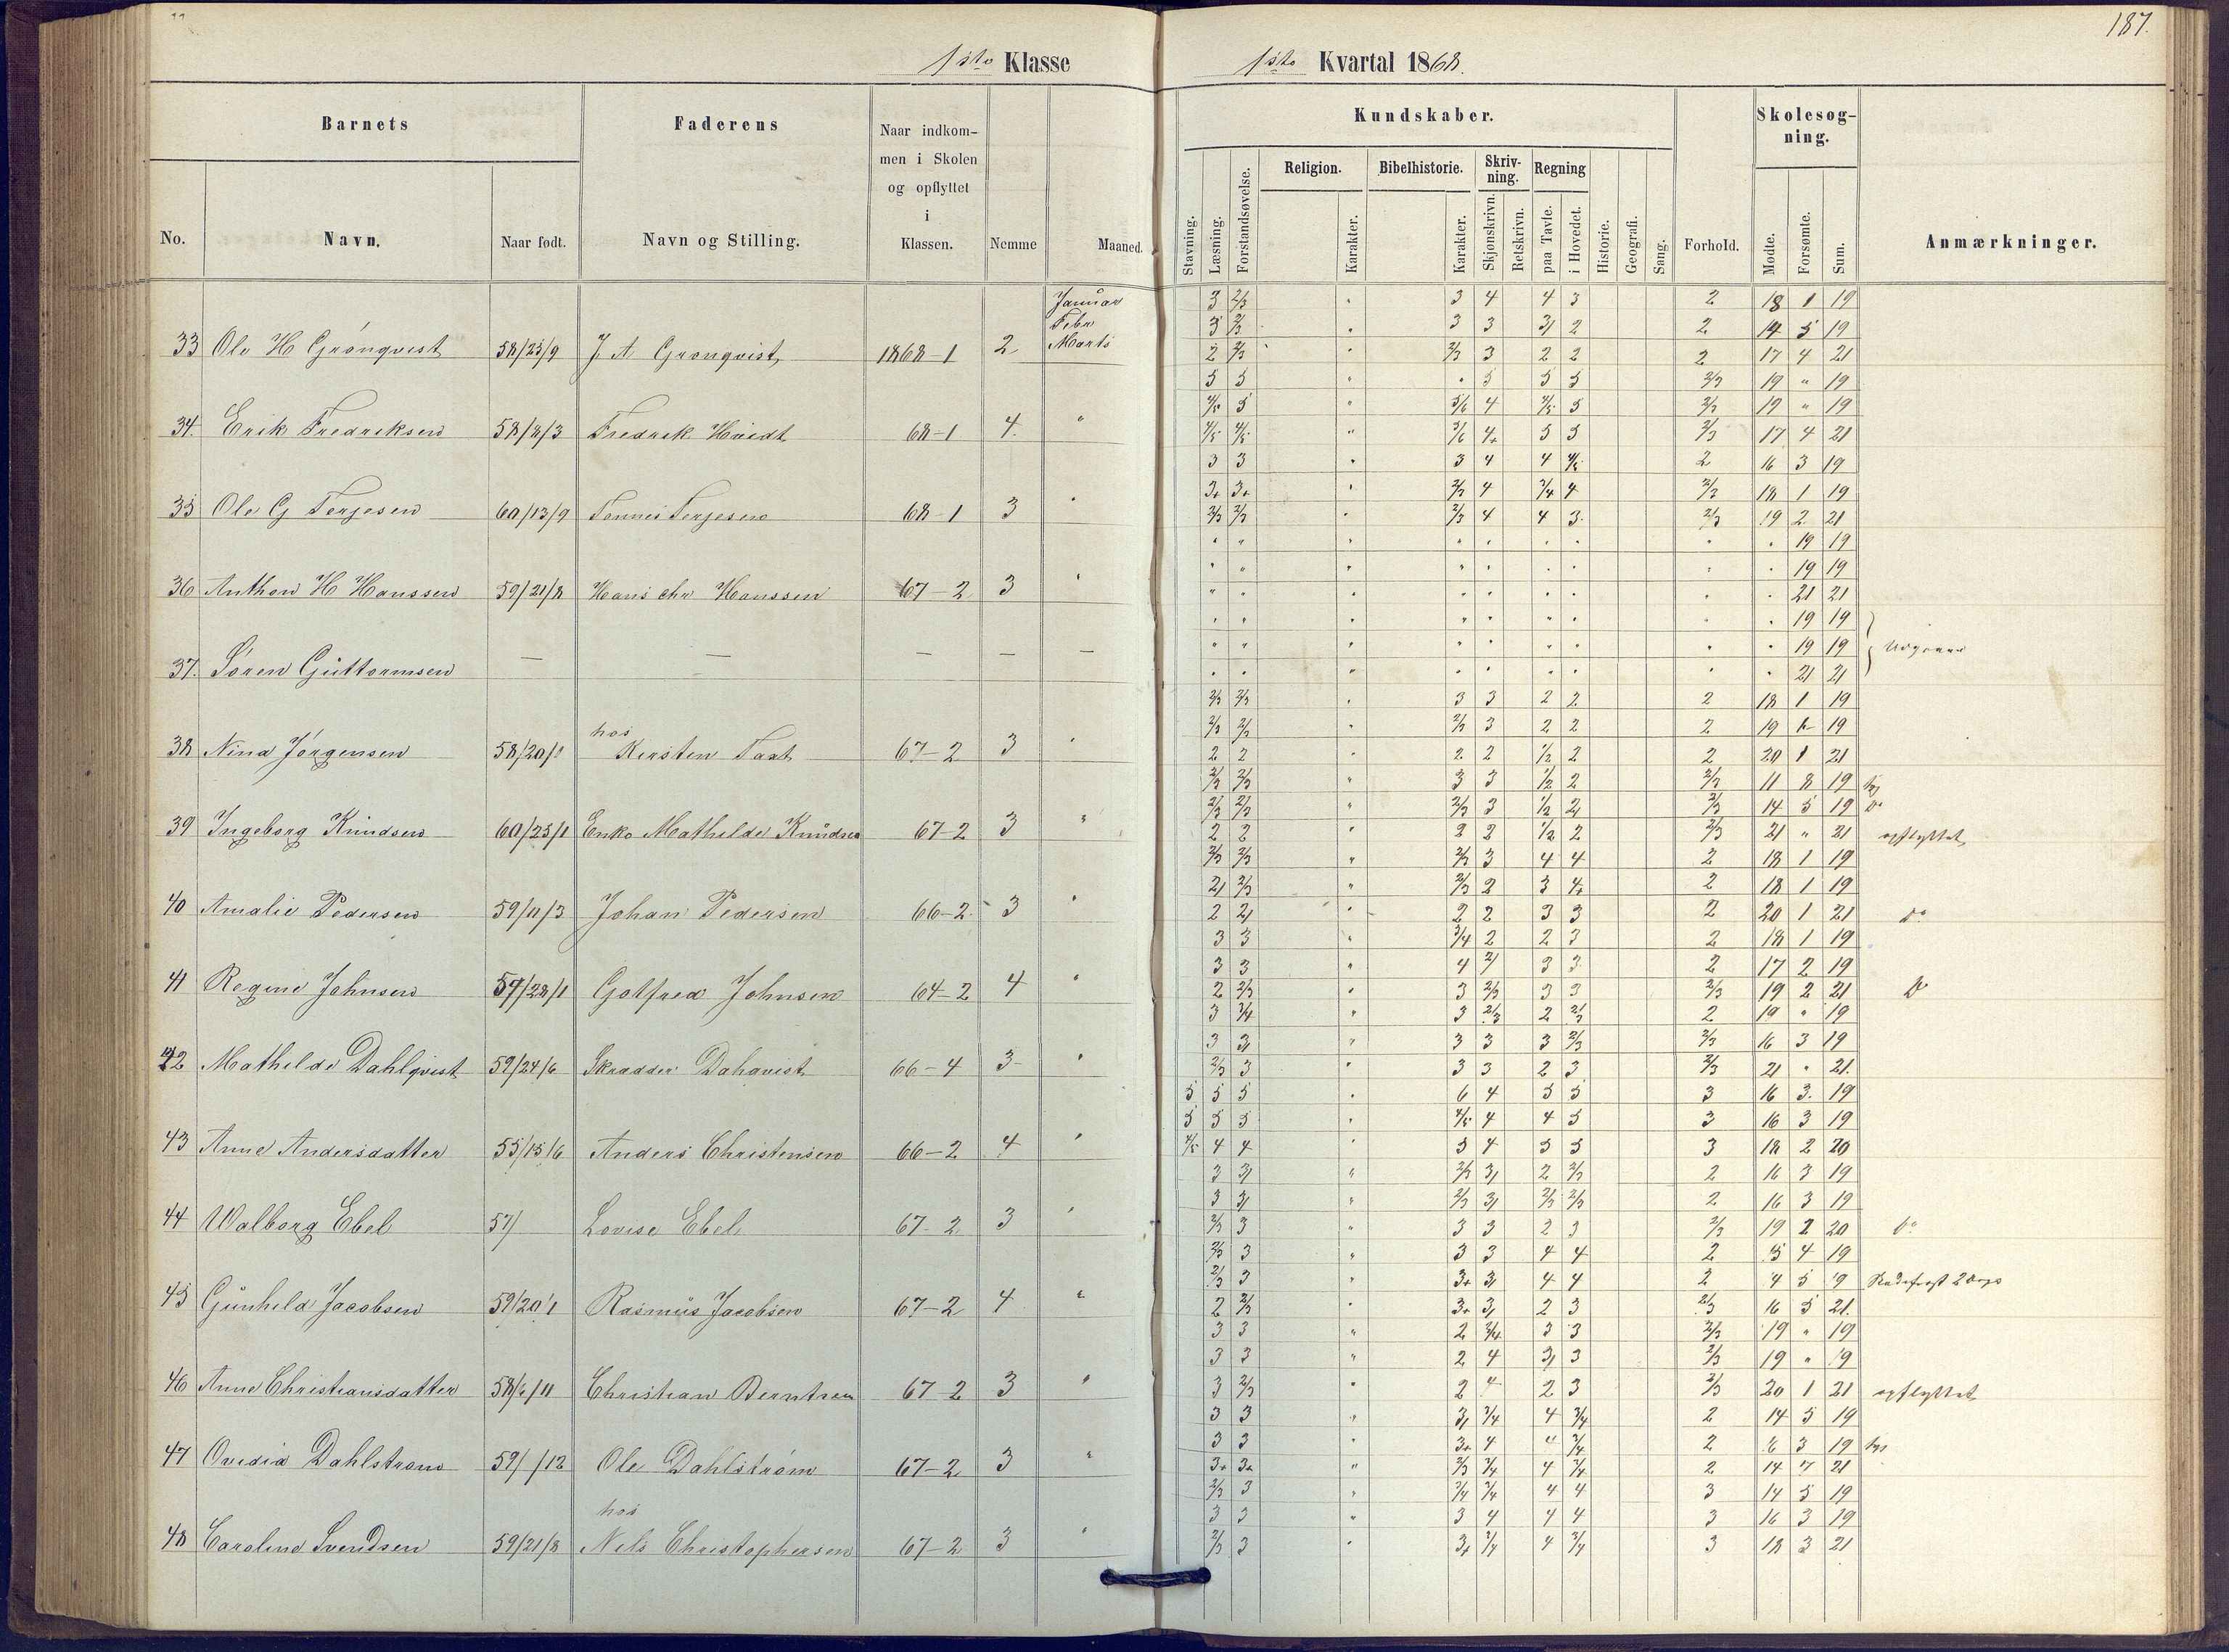 187.
1ste Klasse
1ste Kvartal 1868.
Barnets
Faderens
Naar indkom-
men i Skolen
og opflyttet
i
Klassen.
Nemme
Maaned.
No.
Navn.
Naar født.
Navn og Stilling.
Kundskaber.
Stavning.
Læsning.
Forstandsøvelse.
Religion.
Karakter.
Bibelhistorie.
Karakter.
Skriv-
ning.
Skjønskrivn.
Retskrivn.
Regning
paa Tavle.
i Hovedet.
Historie.
Geografi.
Sang.
Forhold.
Skolesøg-
ning.
Mødte.
Forsømte.
Sum.
Anmærkninger.
Januar 3 2/3 " 3 4 4 3 2 18 1 19
Febr 3 2/3 " 3 3 3/ 2 2 14 5 19
33 Ole H Grönqvist 58/25/9 J A Gronqvist 1868-1 2 Marts 2 2/3 " 2/3 3 2 2 2 17 4 21
5 5 " " 5 5 5 2/3 19 " 19
4/5 5 " 5/6 4 4/5 5 2/3 19 " 19
34. Erik Fredreksen 58/8/3 Fredrek Hvidt 68-1 4. " 4/5 4/5 " 5/6 4+ 5 5 2/3 17 4 21
3 3 " 3 4 4 4/5 2 16 3 19
3+ 3+ " 2/3 4 3/4 4 2/3 18 1 19
35 Ole G Terjesen 60/13/9 Tønnes Terjesen 68-1 3 " 2/3 2/3 " 2/3 4 4 3 2/3 19 2 21
" " " " " " " " " 19 19
" " " " " " " " " 19 19
36 Anthon H Hanssen 59/21/8 Hans Chr Hanssen 67-2 3 " " " " " " " " " " 21 21
" " " " " " " " " 19 19
" " " " " " " " " 19 19
37. Sören Guttormsen — — — — — " " " " " " " " " 21 21
2/3 2/3 " 3 3 2 2 2 18 1 19
hos 2/3 2/3 " 2/3 3 2 2 2 19 19
38 Nina Jörgensen 58/20/1 Kersten Taat 67-2 3 " 2 2 " 2 2 1/2 2 2 20 1 21
2/3 2/3 " 3 3 1/2 2 2/3 11 8 19 syg
2/3 2/3 " 2/3 3 1/2 2/ 2/3 14 5 19 do
39 Ingeborg Knudsen 60/25/1 Enke Mathilde Knudsen 67-2 3 " 2 2 " 2 2 1/2 2 2/3 21 " 21 opflyttet
2/3 2/3 " 2/3 3 4 4 2 18 1 19
2/ 2/3 " 2/3 2 3 4+ 2 18 1 19
40 Amalie Pedersen 59/11/3 Johan Pedersen 66-2 3 " 2 2/ " 2 2 3 3 2 20 1 21 do
3 3 " 3/4 2 2 3 2 18 1 19
3 3 " 4 2/ 3 3 2 17 2 19
41 Regine Johnsen 57/28/1 Gotfred Johnsen 64-2 4 " 2 2/3 " 3 2/3 3 3 2/3 19 2 21 do
3 3/4 " 3 2/3 2 2/3 2 19 " 19
3 3/ " 3 3 3 2/3 2/3 16 3 19
42 Mathilde Dahlqvist 59/24/6 Skrædder Dahqvist 66-4 3 " 2/3 3 " 3 3 2 3 2/3 21 " 21.
5 5 5 " 6 4 5 5 3 16 3 19
5 5 5 " 4/5 4 4 5 3 16 3 19
43 Anne Andersdatter 55/15/6 Anders Christensen 66-2 4 " 4/5 4 4 " 5 4 5 5 3 18 2 20
3 3/ " 2/3 3/ 2 2/3 2 16 3 19
3 3/ " 2/3 3/ 2/3 2/3 2 16 3 19
44 Walborg Ebel 57/ Lovise Ebel 67-2 3 " 2/3 3 " 3 3 2 3 2/3 19 1 20 do
2/3 3 " 3 3 4 4 2 15 4 19
2/3 3 " 3+ 3/ 4 4 2 14 5 19 2 dage
45 Gunhild Jacobsen 59/20/1 Rasmus Jacobsen 67-2 4 " 2 2/3 " 3+ 3/ 2 3 2/3 16 5 21.
3 3 " 2 3/4 3 3 2/3 19 " 19
3 3 " 2 4 3/ 3 2/3 19 " 19
46 Anne Christiansdatter 58/6/11 Christian Berntsen 67-2 3 " 3 2/3 " 2 4 2 3 2/3 20 1 21 opflyttet
3 3 " 3/ 3/4 4 3/4 2 14 5 19
3 3 " 3+ 4 4 3/4 2 16 3 19 syg
47 Ovedia Dahlstrøm 59/ /12 Ole Dahlstrøm 67-2 3 " 3+ 3+ " 2/3 3/4 4 3/4 2 14 7 21
2/3 3 " 3/4 3/4 4 4 3 14 5 19
hos 3 3 " 3 4 4 4 3 16 3 19
48 Caroline Svendsen 59/21/8 Nels Christophersen 67-2 3 " 2/3 3 " 3+ 3/4 4 3/4 3 18 3 21